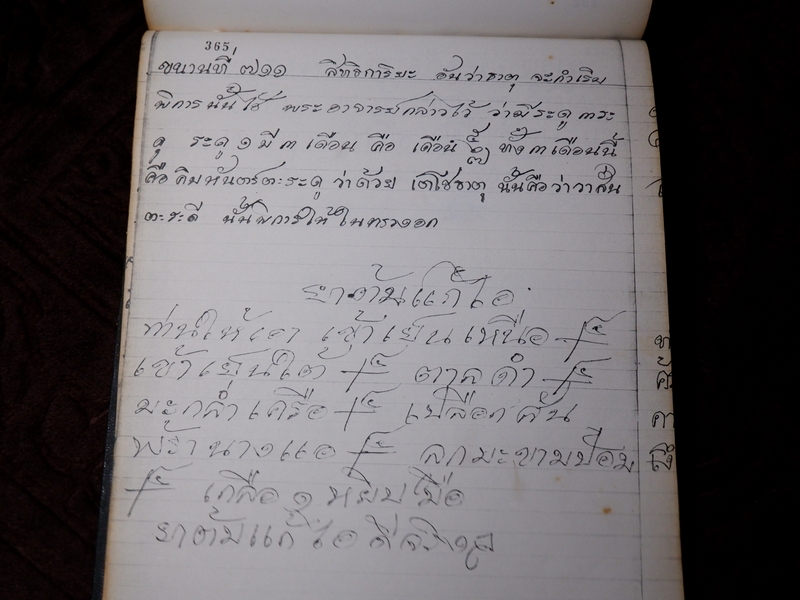 365
ขนานที่ ๗๑๑ สิทธิการิยะ อันว่าธาตุ จะกำเริบ
พิการนั้น พระอาจารย์กล่าวไว้ ว่ามีระดู ๓ ระ
ดู ระดู ๑ มี ๓ เดือน คือ เดือน ทั้ง ๓ เดือนนี้
คือคิมหันตระดู ว่าด้วย เตโชธาตุ นั้นคือว่า
นั้นพิการให้ในทรวงอก
ยาต้มแก้ไอ
ท่านให้เอา เข้าเย็นเหนือ
เข้าเย็นใต้ ตาลดำ
มะกล่ำเครือ เปลือกต้น
พร้านางแอ ลูกมะขามป้อม
เกลือ ๑ หยิบมือ
ยาต้มแก้ไอดีจริงๆ